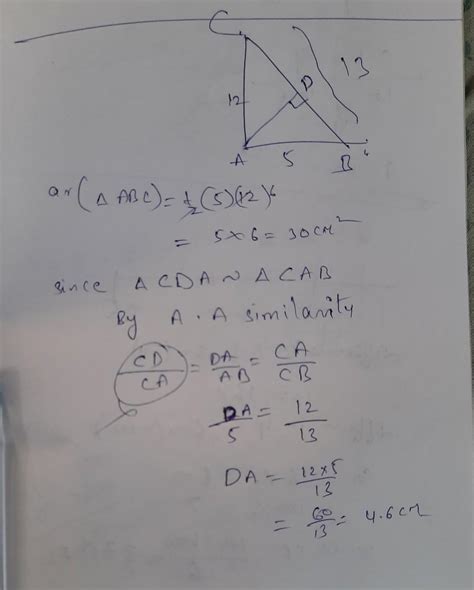 C
12
D
13
A
5
B
ar(△ABC) = 1/2 (5)(12) 6
= 5×6 = 30cm²
since △CDA ~ △CAB
By A.A similarity
CD/CA = DA/AB = CA/CB
DA/5 = 12/13
DA = 12×5/13
= 60/13 = 4.6cm